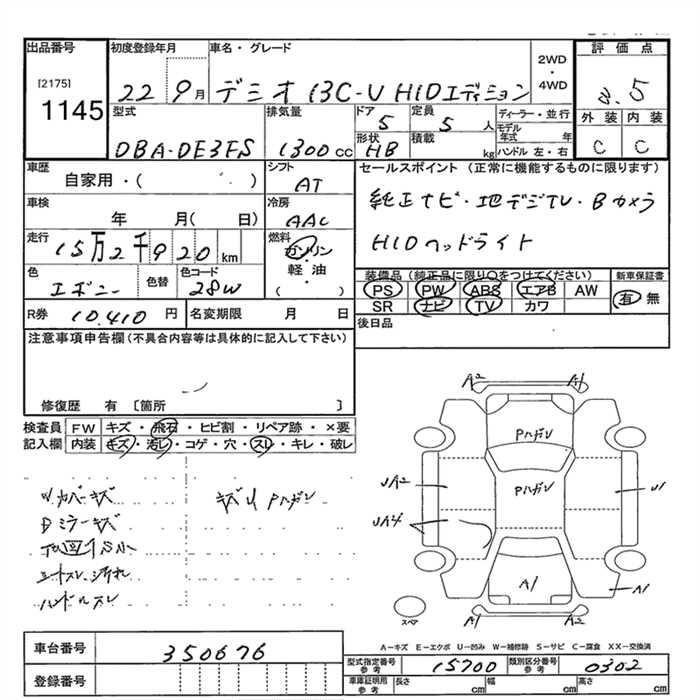 出品番号
[2175]
1145
初度登録年月
22 9月
車名・グレード
デミオ 13C-V HIDエディション
2WD
・
4WD
評価点
3.5
外装 内装
C C
型式
DBA-DE3FS
排気量
1300 cc
ドア
5
定員
5 人
形状
HB
積載
kg
ディーラー・並行
モデル年式 年
ハンドル 左・右
車歴
自家用・( )
シフト
AT
車検
年 月( 日)
冷房
AAC
走行
15万2千920 km
燃料
ガソリン
・
軽・油
( )
色
エボニー
色替
色コード
28W
R券 10,410 円
名変期限 月 日
セールスポイント (正常に機能するものに限ります)
純正ナビ・地デジTV・Bカメラ
HIDヘッドライト
装備品 (純正品に限り○をつけてください)
新車保証書
PS PW ABS エアB AW
有 無
SR ナビ TV カワ
後日品
注意事項申告欄(不具合内容等は具体的に記入して下さい)
修復歴 有 〔箇所 〕
検査員 FW キズ・飛石・ヒビ割・リペア跡・×要
記入欄 内装 キズ・汚レ・コゲ・穴・スレ・キレ・破レ
Wカバーキズ
キズU Pハガレ
Dミラーキズ
シートスレ・汚れ
ハンドルスレ
A2 A1
Pハガレ
Pハガレ
UA2
U1
UA4
A1
A1
A1 A2
スペア
A-キズ E-エクボ U-凹み W-補修跡 S-サビ C-腐食 XX-交換済
車台番号
350676
登録番号
型式指定番号
参考
15700
類別区分番号
参考
0302
車庫証明用
参考
長さ cm
幅 cm
高さ cm